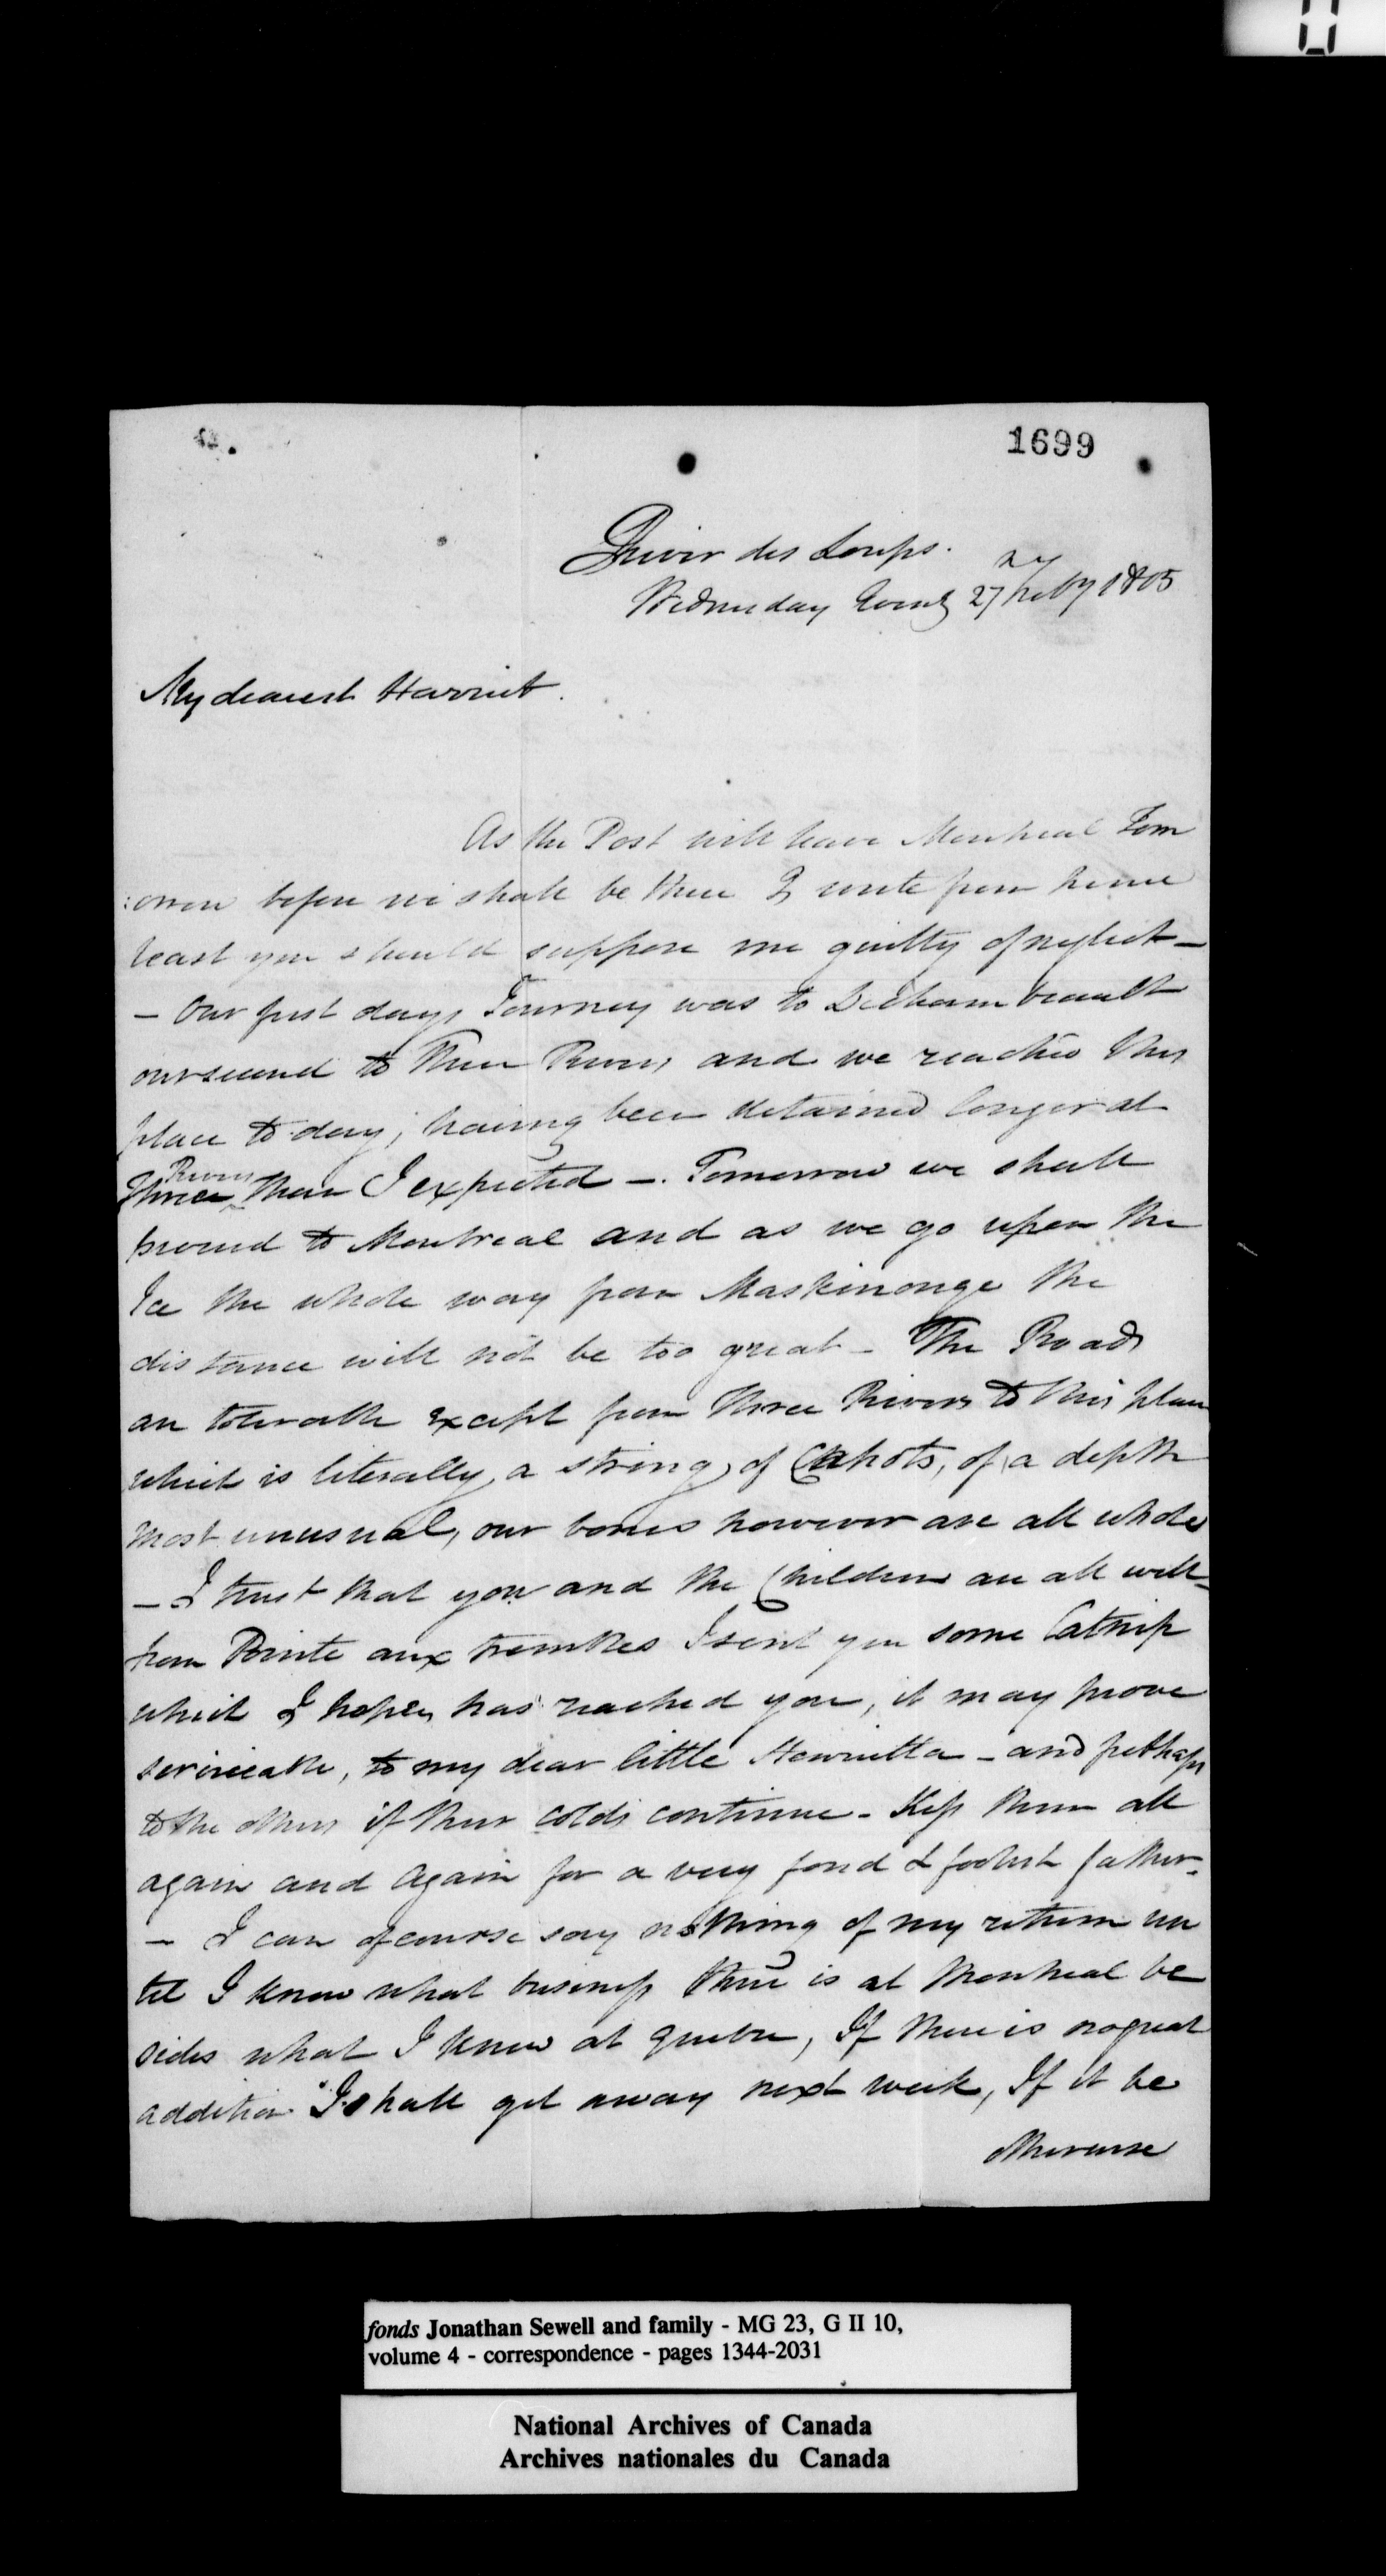 1699
River des Loups.
Wednesday Eveng 27 Feby 1805
My dearest Harriet.
As the Post will leave Montreal Tom
:orrow before we shall be there I write from hence
least you should suppose me guilty of neglect —
— Our first days Journey was to Dechambeault
our second to Three Rivers and we reached this
place to day; having been detained longer at
Three Rivers than I expected —. Tomorrow we shall
proceed to Montreal and as we go upon the
Ice the whole way from Maskinonge the
distance will not be too great — The Roads
are tolerable except from Three Rivers to this place
which is literally, a string, of Cahots, of a depth
most unusual, our bones however are all whole
— I trust that you and the Children are all well —
from Pointe aux trembles I sent you some Catnip
which I hope has reached you, it may prove
serviceable, to my dear little Henrietta — and perhaps
to the others if their colds continue — Kiss them all
again and again for a very fond & foolish father —
— I can of course say nothing of my return un
til I know what business there is at Montreal be
sides what I knew at Quebec, If there is no great
addition I shall get away next week, If it be
otherwise
fonds Jonathan Sewell and family - MG 23, G II 10,
volume 4 - correspondence - pages 1344-2031
National Archives of Canada
Archives nationales du Canada